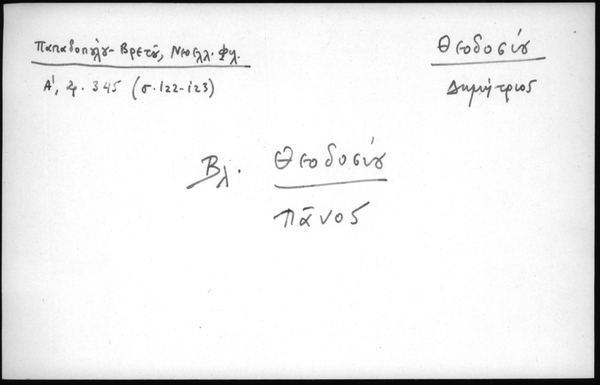 Παπαδοπούλου-Βρετοῦ, Νεοελλ. Φιλ.
Α', ἀρ. 345 (σ. 122-123)
Θεοδοσίου
Δημήτριος
Βλ. Θεοδοσίου
Πᾶνος